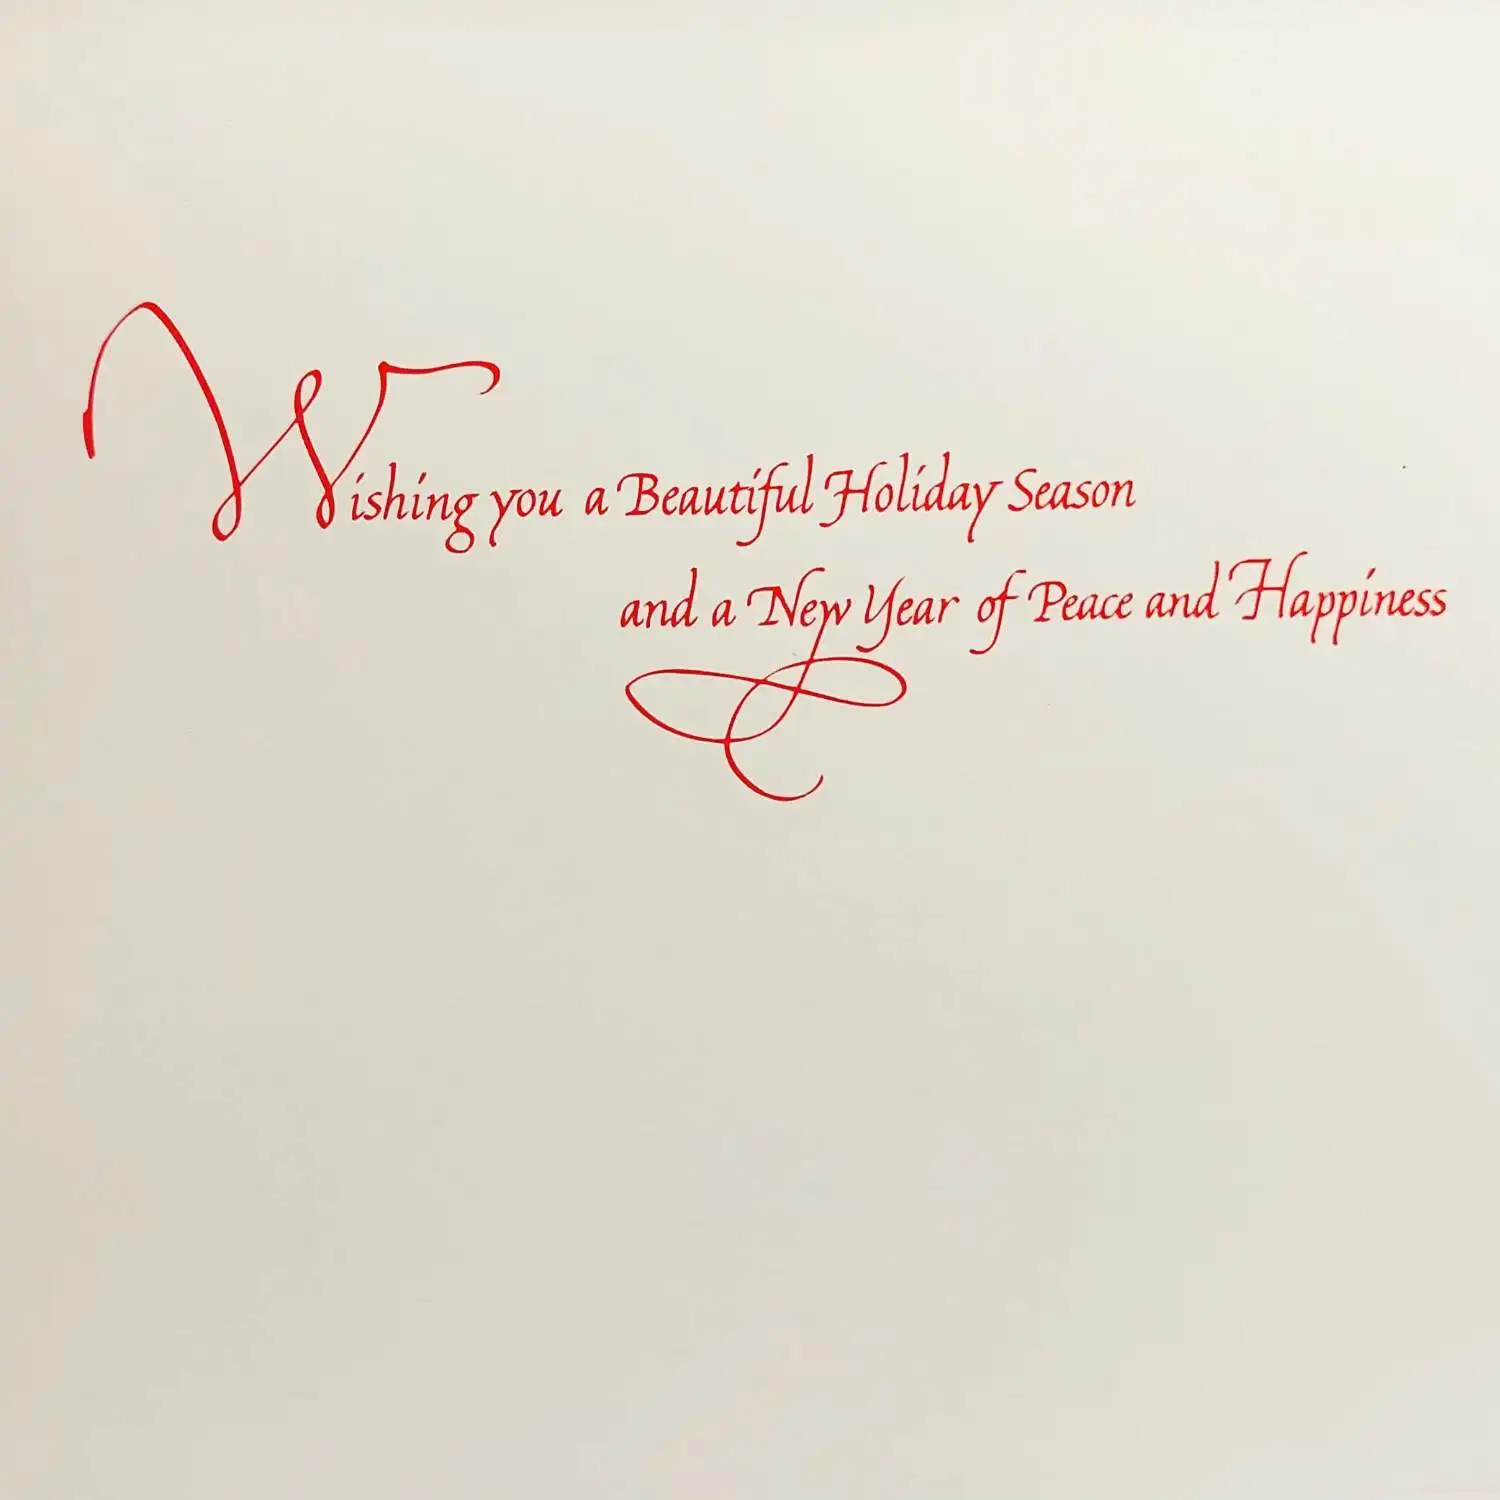 Wishing you a Beautiful Holiday Season
and a New Year of Peace and Happiness